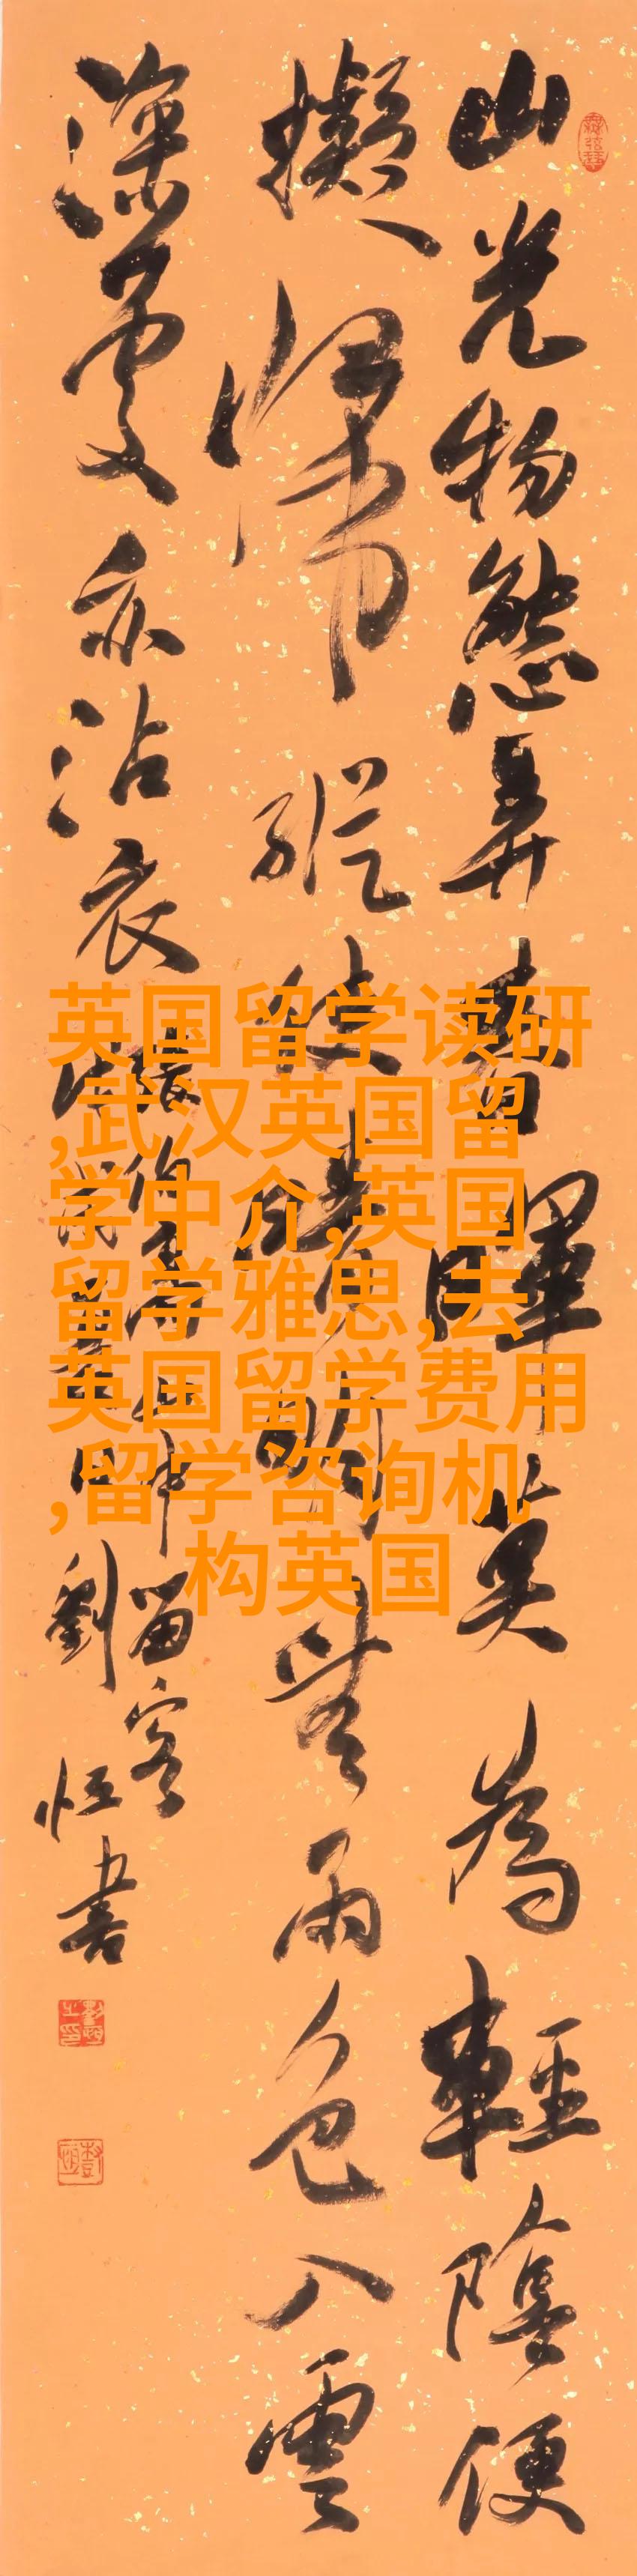 山光物態弄春暉莫為輕陰便
擬歸縱使晴明無雨色入雲
深處亦沾衣
張伯高山中留客
劉恒書
英国留学读研
,武汉英国留
学中介,英国
留学雅思,去
英国留学费用
,留学咨询机
构英国